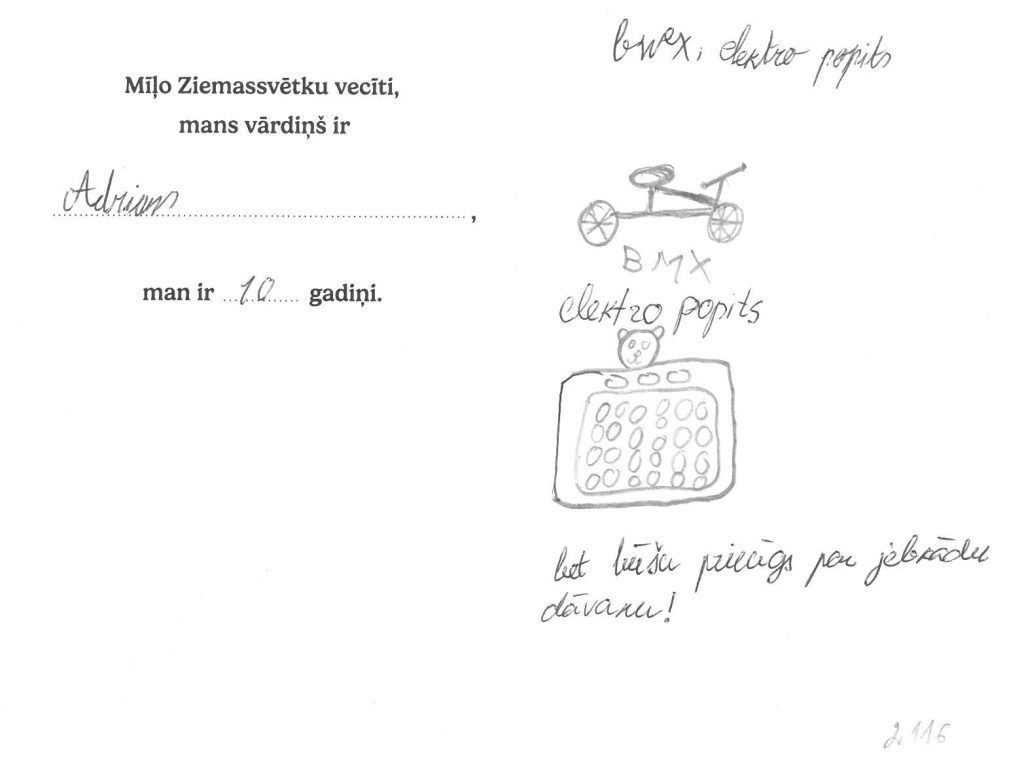 Mīļo Ziemassvētku vecīti,
mans vārdiņš ir
Adrians,
man ir 10 gadiņi.
bmx, elektro popits
BMX
elektro popits
bet būšu priecīgs par jebkādu
dāvanu!
2.116